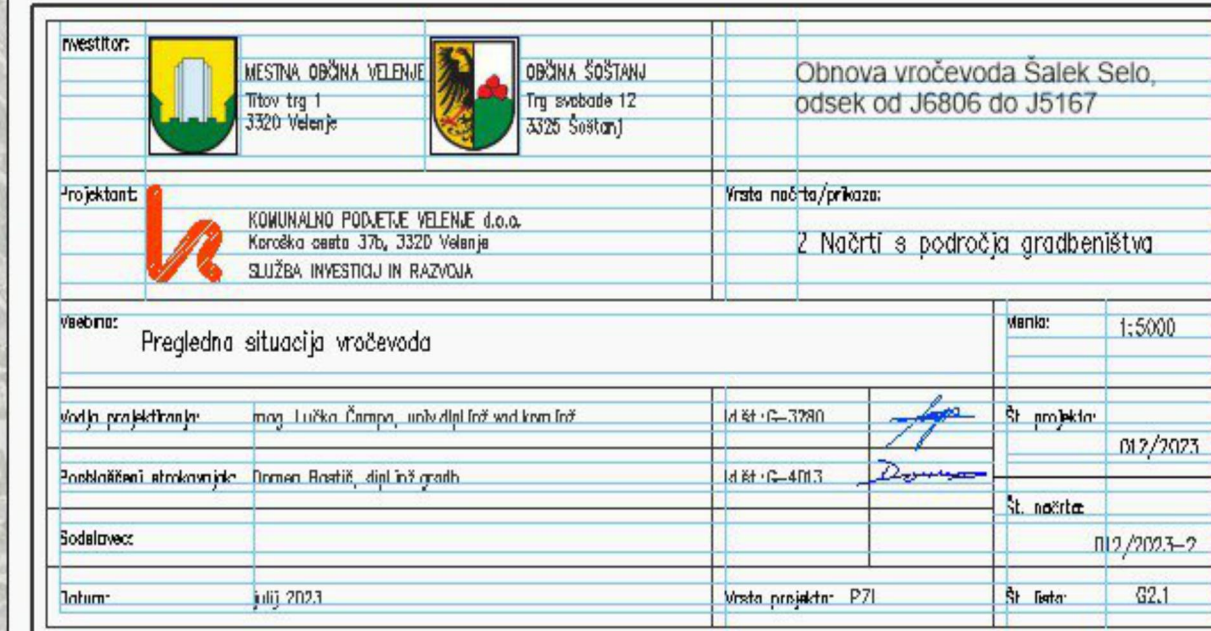 Investitor:
MESTNA OBČINA VELENJE
Titov trg 1
3320 Velenje
OBČINA ŠOŠTANJ
Trg svobode 12
3325 Šoštanj
Obnova vročevoda Šalek Selo,
odsek od J6806 do J5167
Projektant:
KOMUNALNO PODJETJE VELENJE d.o.o.
Koroška cesta 37b, 3320 Velenje
SLUŽBA INVESTICIJ IN RAZVOJA
Vrsta načrta/prikaza:
2 Načrti s področja gradbeništva
Vsebina:
Pregledna situacija vročevoda
Merilo:
1:5000
Vodja projektiranja: mag. Lučka Čampa, univ.dipl.inž.vod.kom.inž. Id.št.:G-3280
Št. projekta:
012/2023
Pooblaščeni strokovnjak: Domen Bastič, dipl.inž.gradb. Id.št.:G-4013
Št. načrta:
012/2023-2
Sodelavec:
Datum: julij 2023
Vrsta projekta: PZI
Št. lista: G2.1